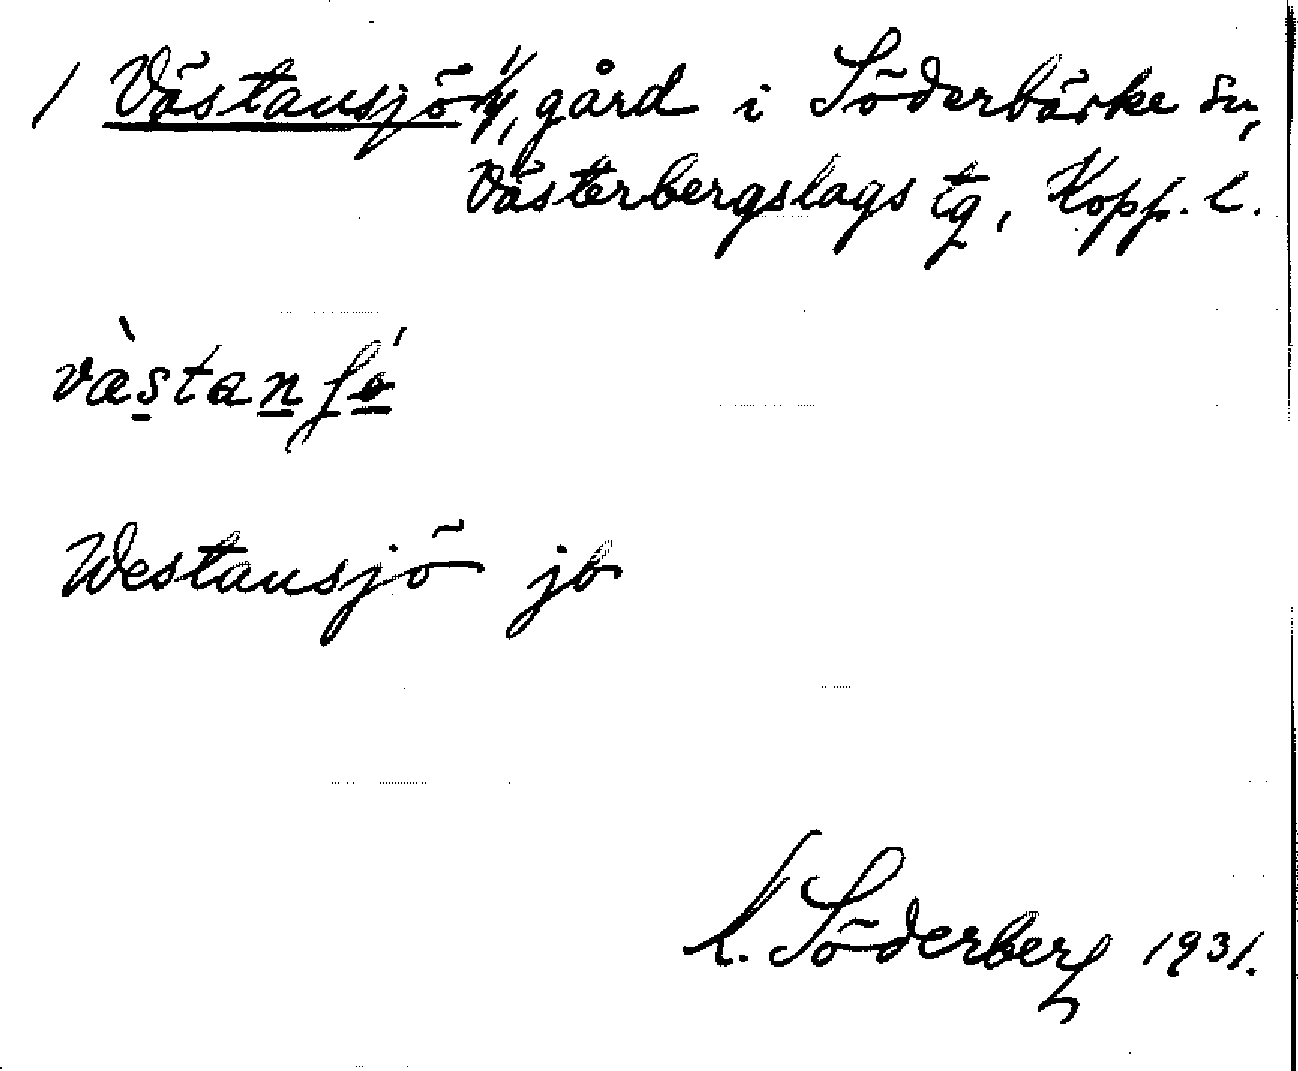 1 Västansjö 1/4, gård i Söderbärke sn,
Västerbergslags tg, Kopp. l.
Westansjö jb
L. Söderberg 1931.